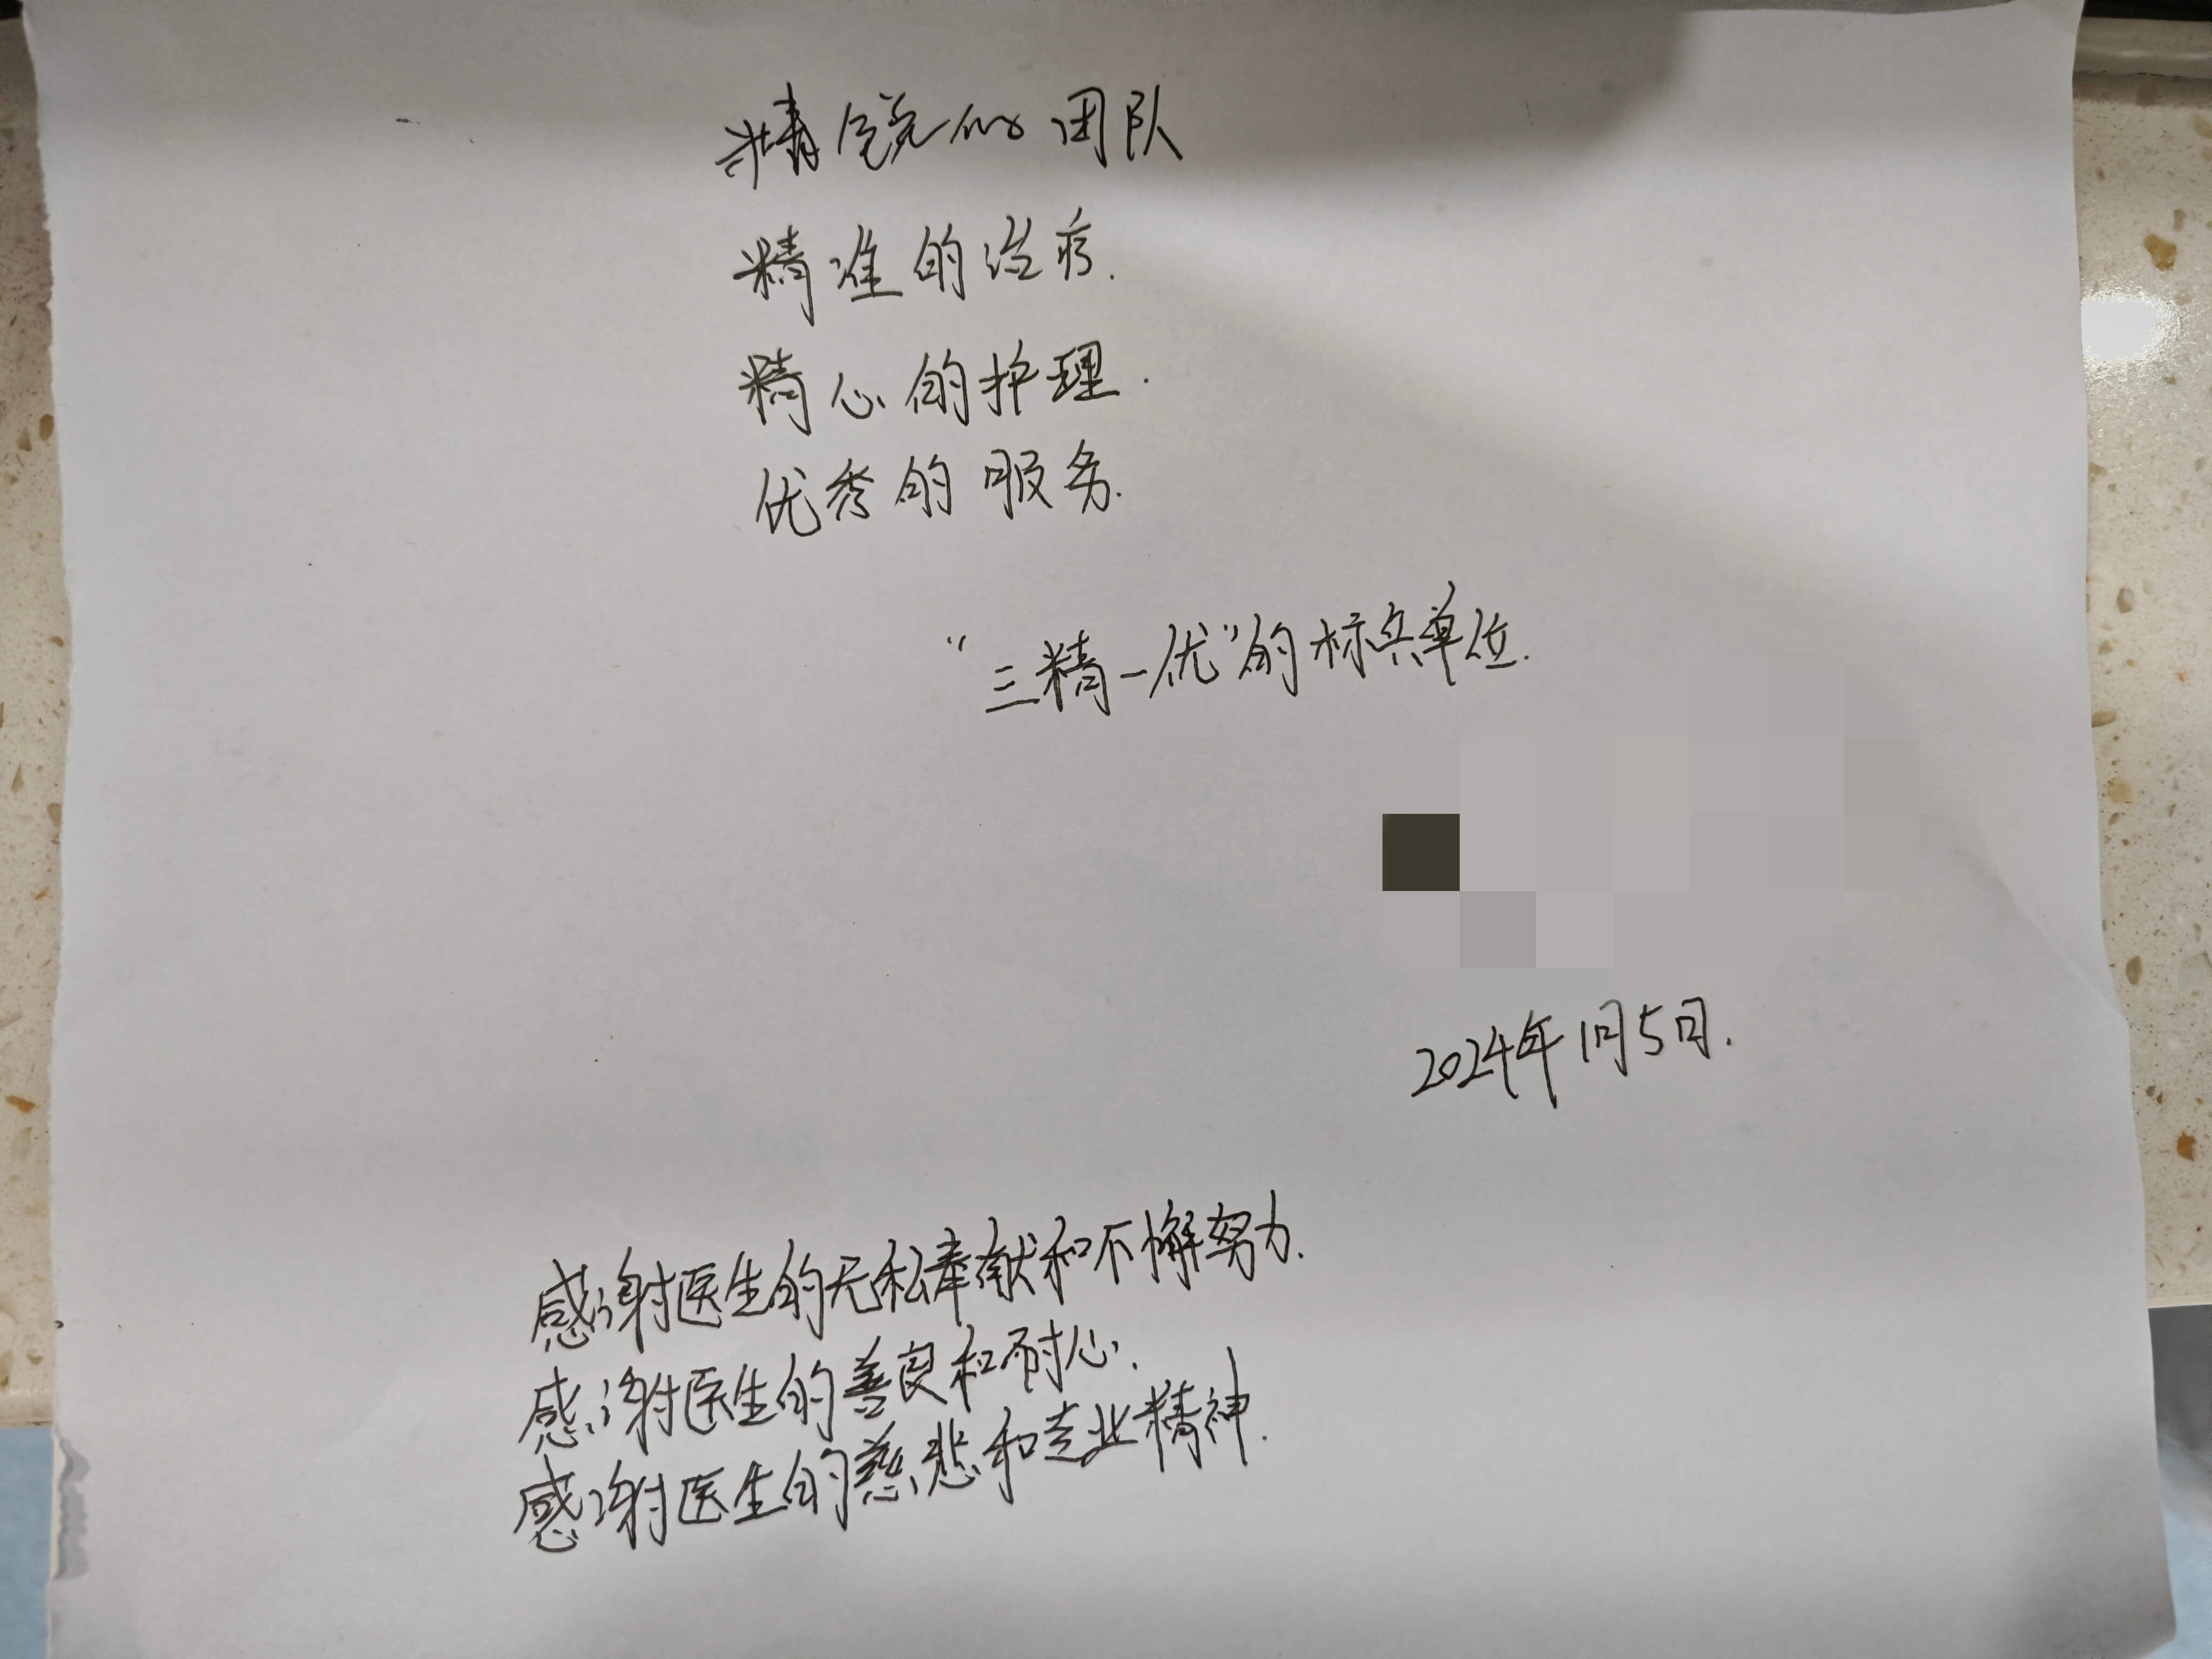 精锐的团队
精准的治疗.
精心的护理.
优秀的服务.
“三精一优”的标兵单位.
2024年1月5日.
感谢医生的无私奉献和不懈努力.
感谢医生的善良和耐心.
感谢医生的慈悲和专业精神.